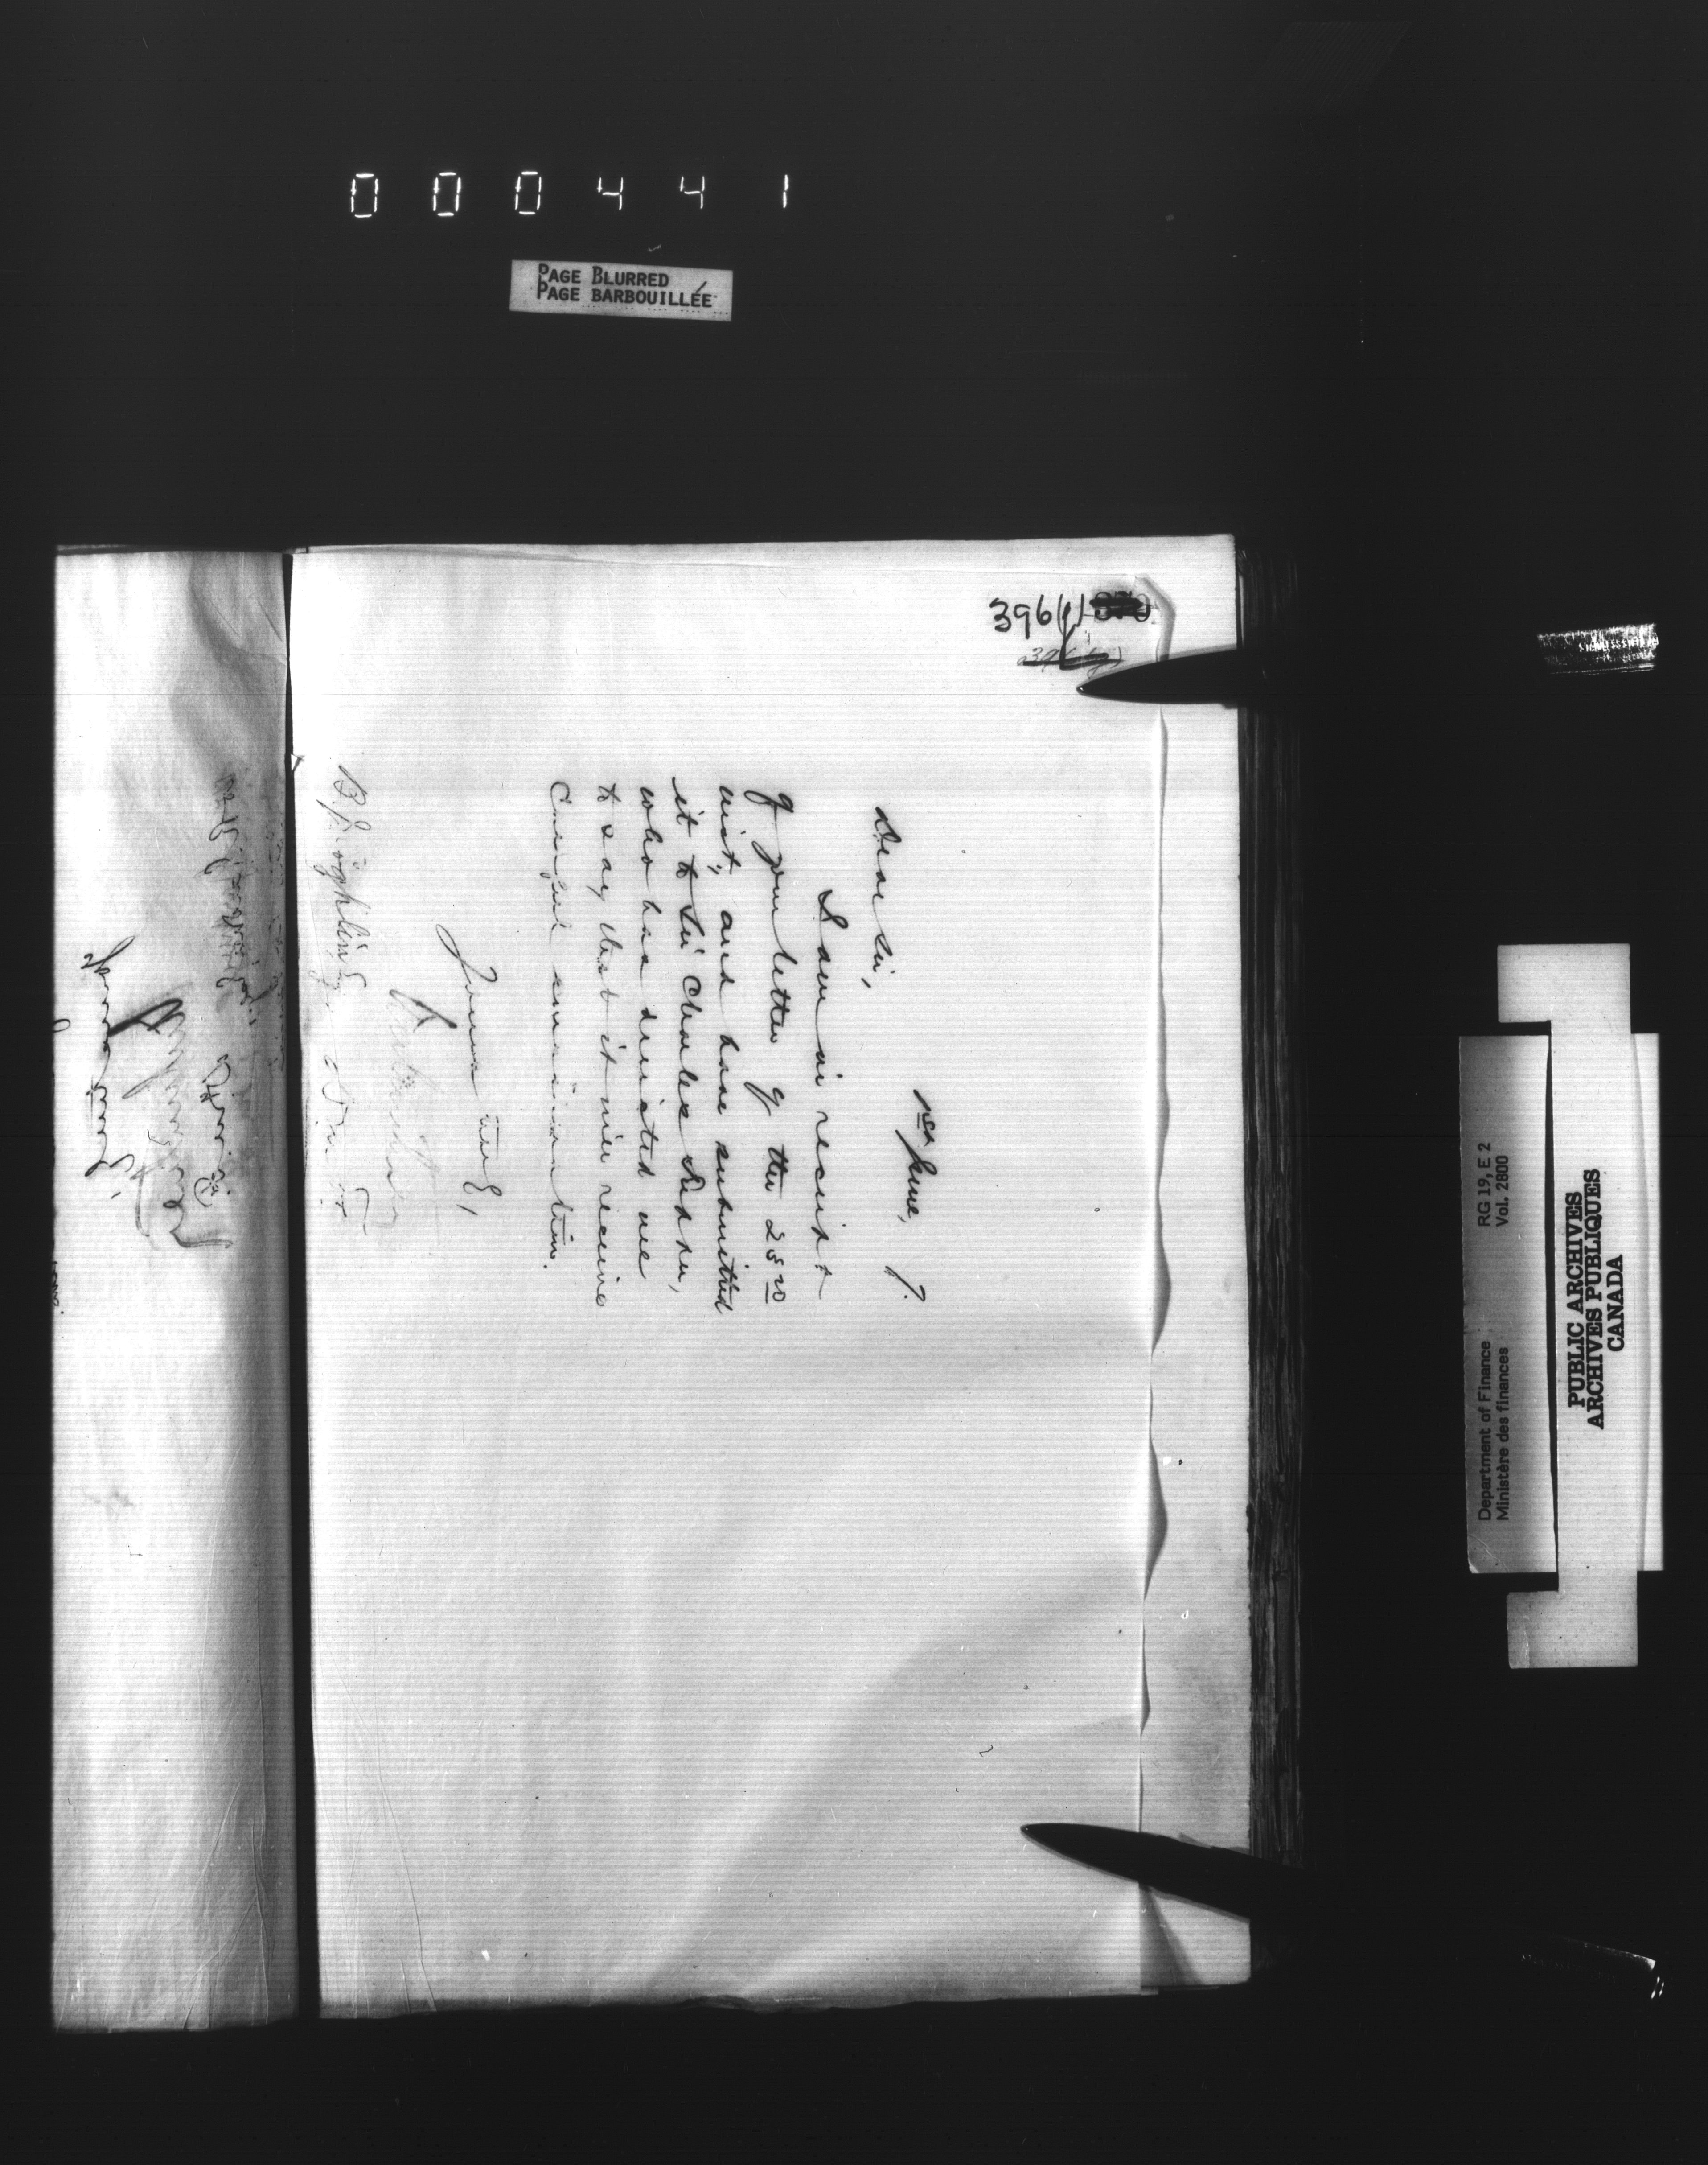 000441
PAGE BLURRED
PAGE BARBOUILLÉE
396(1)
1st June, 7.
Dear Sir,
I am in receipt
of your letter of the 25th
inst, and have submitted
it to Sir Charles Tupper,
who has directed me
to say that it will receive
Careful consideration.
Yours truly,
RG 19, E 2
Vol. 2800
Department of Finance
Ministère des finances
PUBLIC ARCHIVES
ARCHIVES PUBLIQUES
CANADA